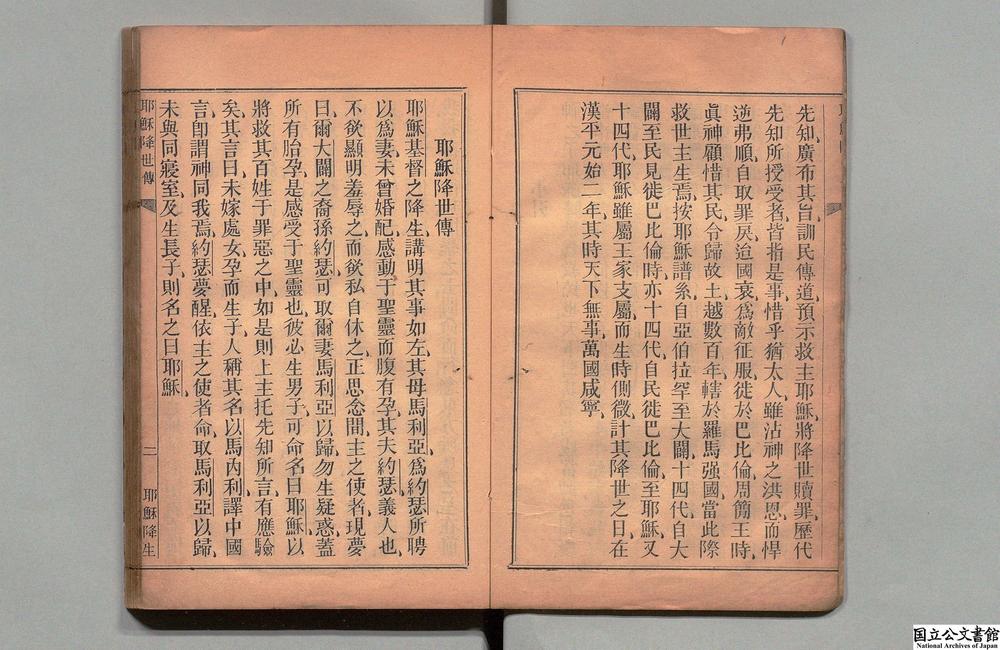 先知廣布其旨訓民傳道預示救主耶穌將降世贖罪歷代
先知所授受者皆指是事惜乎猶太人雖沾神之洪恩而悍
逆弗順自取罪戾迨國衰爲敵征服徙於巴比倫周簡王時
眞神顧惜其民令歸故土越數百年轄於羅馬强國當此際
救世主生焉按耶穌譜系自亞伯拉罕至大闢十四代自大
闢至民見徙巴比倫時亦十四代自民徙巴比倫至耶穌又
十四代耶穌雖屬王家支屬而生時側微計其降世之日在
漢平元始二年其時天下無事萬國咸寧
耶穌降世傳
耶穌基督之降生講明其事如左其母馬利亞爲約瑟所聘
以爲妻未曾婚配感動于聖靈而腹有孕其夫約瑟義人也
不欲顯明羞辱之而欲私自休之正思念間主之使者現夢
曰爾大闢之裔孫約瑟可取爾妻馬利亞以歸勿生疑惑蓋
所有胎孕是感受于聖靈也彼必生男子可命名曰耶穌以
將救其百姓于罪惡之中如是則上主托先知所言有應驗
矣其言曰未嫁處女孕而生子人稱其名以馬內利譯中國
言卽謂神同我焉約瑟夢醒依主之使者命取馬利亞以歸
未與同寢室及生長子則名之曰耶穌
耶穌降世傳
二
耶穌降生
国立公文書館
National Archives of Japan